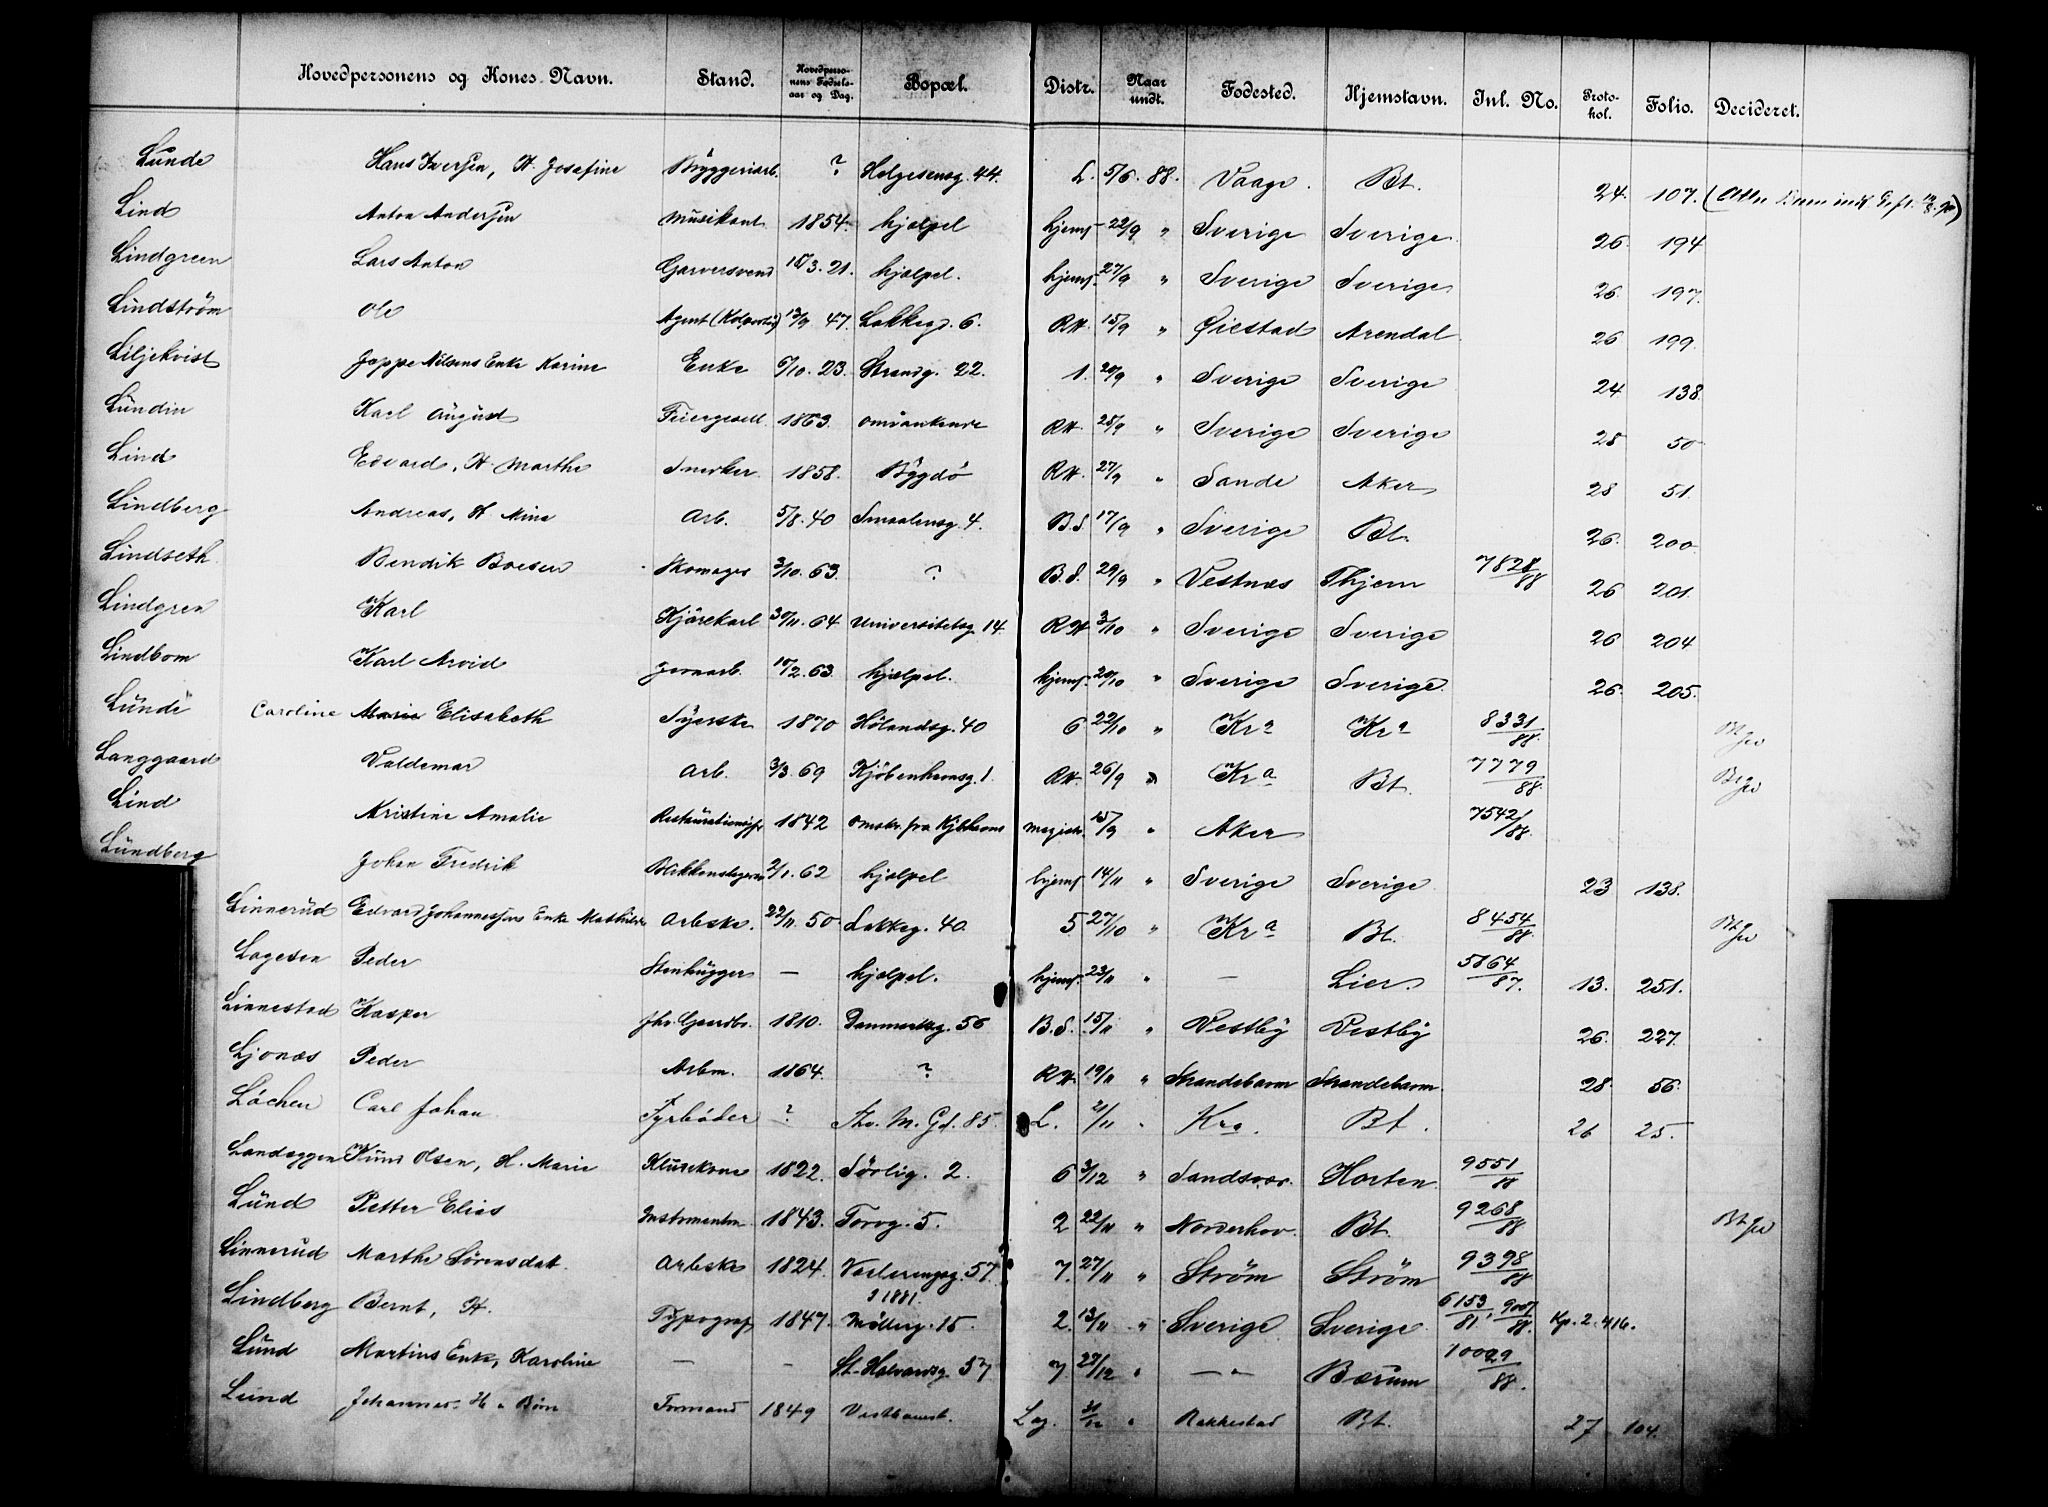 Hovedpersonens og Kones Navn. Stand. Hovedperso-nens Fødsels-aar og Dag. Bopæl. Distr. Naar undt. Fødested. Hjemstavn. Inl. No. Proto-kol. Folio. Decideret.
Lunde Hans Iversen, H. Josefine Bryggeriarb. ? Helgesensg. 44. L. 5/6. 88. Vaage. Bt. 24. 107.
Lind Anton Andersen Musikant 1854. hjælpel hjems 22/9 " Sverige Sverige. 26. 194
Lindgreen Lars Anton Garversvend 3. 21. hjælpel. hjems. 27/9 " Sverige Sverige 26. 197.
Lindström Ole Agent (Kolportør) 47. Lakkeg. 6. RH. 15/9 " Øiestad Arendal 26 199.
Liljekvist Jeppe Nilsens Enke Karine Enke 6/10. 23. Strandg. 22. 1. 20/9 " Sverige Sverige 24 138.
Lundin Karl August Feiergesell 1863. omvankende RH. 25/9 " Sverige Sverige 28 50
Lind Edvard, H. Marthe Snedker 1858. Bygdö RH. 27/9 " Sande Aker 28 51.
Lindberg Andreas, H. Mina Arb. 5/8. 40 Smaalensg. 4. B.S. 17/9 " Sverige Bt. 26. 200.
Lindseth Bendik Boesen Skomager 3/10. 63. ? B.S. 29/9 " Vestnæs Thjem 7828/88 26 201.
Lindgren Karl Kjörekarl 30/11. 64 Universitetsg. 14. RH 3/10 " Sverige Sverige 26 204
Lindbom Karl Arvid Jernarb. 2. 63. hjælpel. hjems. 20/10 " Sverige Sverige. 26. 205.
Lunde Caroline Marie Elisabeth Syerske 1870 Hölandsg. 40 6 22/10 " Kra Kra 8331/88. Bt
Langgaard Valdemar Arb. 3/3. 69 Kjöbenhavnsg. 1. RH. 26/9 " Kra Bt. 7779/88.
Lind Kristine Amalie 1842 Omstr. fra Kjbhavn magistr. 15/9 " Aker 7542/88.
Lundberg Johan Fredrik Blikkenslager 2/1. 62 hjælpel hjems 14/11 " Sverige Sverige 23 138.
Linnerud Edvard Johannessens Enke Mathilde Arbeske. 22/11. 50 Lakkeg. 40. 5 27/10 " Kra Bt. 8454/88. Bt
Lagesen Peder Stenhugger — hjælpel. hjems. 23/11 " — Lier. 5164/87. 13. 251.
Linnestad Kasper fhv. Gaardbr. 1810. Danmarksg. 56 B.S. 15/11 " Vestby Vestby 26. 227.
Ljonæs Peder Arbm. 1864. ? RH. 19/11 " Strandebarm Strandebarm 28. 56.
Löchen Carl Johan Fyrböder ? Thv. M. Gd. 85. L. 21/11 " Kra. Bt. 26 25.
Landeggen Knud Olsen, H. Marie 1822. Sörlig. 2. 6 3/12 " Sandsvær. Horten. 9551/88
Lund Petter Elias Instrumentm 1843. Torvg. 5. 2 22/11 " Norderhov. Bt. 9268/88 Bt
Linnerud Marthe Sörensdat. Arbeske 1824. Vaalerengg. 57. 7. 27/11 " Ström Ström 9398/88
Lindberg Bernt, H. Typograf 1847. I 1881. Mölleg. 15. 2. 13/11 " Sverige Sverige 6153/81, 9007/88. Kp. 2. 416.
Lund Martins Enke, Karoline — — St. Halvardsg. 57 7 27/12 " — " — Bærum 10029/88.
Lund Johannes. H & Börn Formand 1849 Lag. 31/12 " Rakkestad Bt. 27 104.